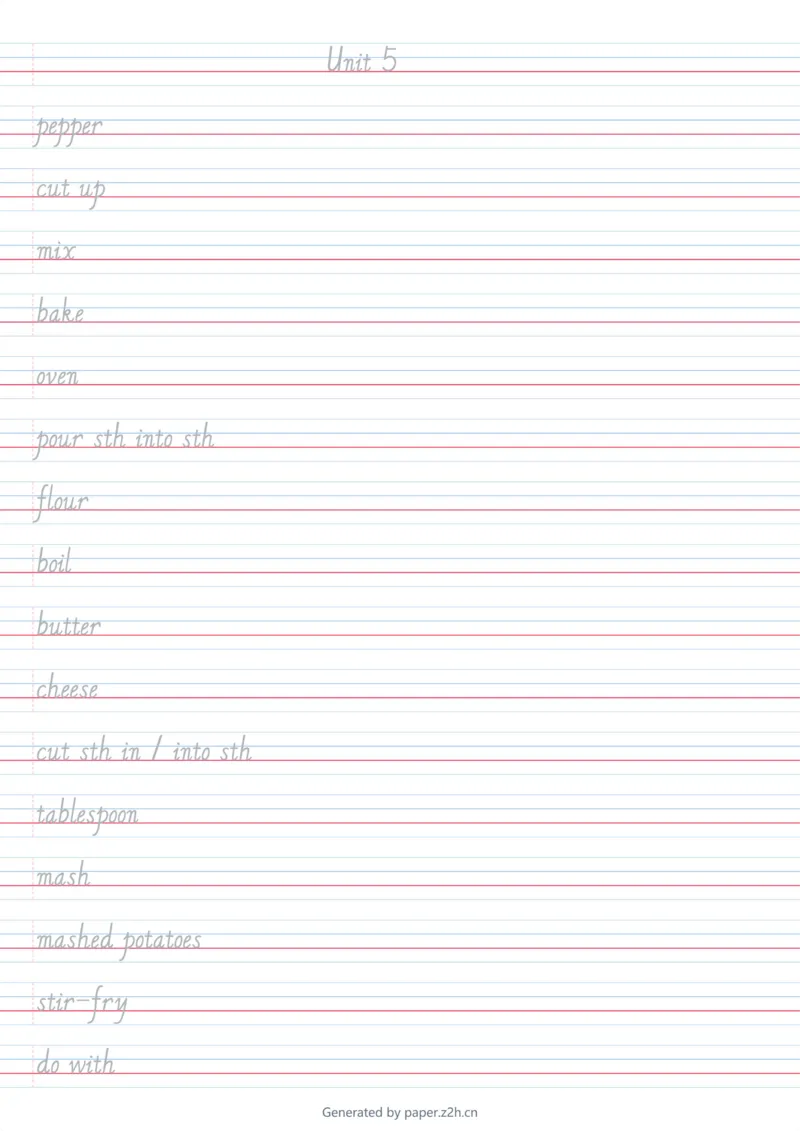 Unit 5
pepper
cut up
mix
bake
oven
pour sth into sth
flour
boil
butter
cheese
cut sth in / into sth
tablespoon
mash
mashed potatoes
stir-fry
do with
Generated by paper.z2h.cn